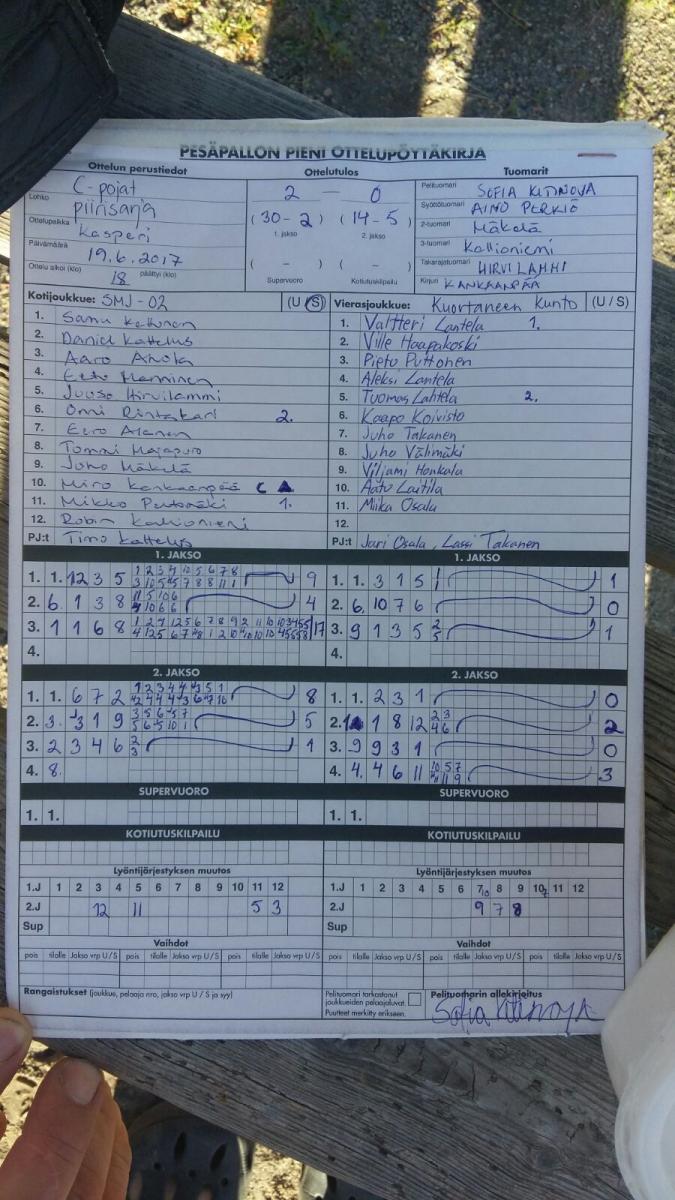 PESÄPALLON PIENI OTTELUPÖYTÄKIRJA
Ottelun perustiedot
Lohko C-pojat
piirisarja
Ottelupaikka Kasperi
Päivämäärä 19.6.2017
Ottelu alkoi (klo) 18 päättyi (klo)
Ottelutulos
2 - 0
(30 - 2) (14 - 5)
1. jakso 2. jakso
( - ) ( - )
Supervuoro Kotiutuskilpailu
Tuomarit
Pelituomari SOFIA KITINOVA
Syöttötuomari AINO PERKIÖ
2-tuomari Mäkelä
3-tuomari Kallioniemi
Takarajatuomari HIRVILAMMI
Kirjuri KANKAANPÄÄ
Kotijoukkue: SMJ-02 (U/S)
1. Samu Kettunen
2. Daniel Kattelus
3. Aaro Ahola
4. Eeto Manninen
5. Juuso Hirvilammi
6. Onni 2.
7. Eero Alanen
8. Tommi
9. Juho Mäkelä
10. Miro Kankaanpää C
11. Mikko 1.
12. Robin Kallioniemi
PJ:t Timo Kattelus
Vierasjoukkue: Kuortaneen Kunto (U/S)
1. Valtteri Lantela 1.
2. Ville Haapakoski
3. Pietu Puttonen
4. Aleksi Lantela
5. Tuomas Lahtela 2.
6. Kaapo Koivisto
7. Juho Takanen
8. Juho Välimäki
9. Viljami Honkala
10. Aatu Lautila
11. Miika Osala
12.
PJ:t Jari Osala, Lassi Takanen
1. JAKSO
1. 1. 12 3 5 9
2. 6. 1 3 8 4
3. 1 1 6 8 17
4.
1. JAKSO
1. 1. 3 1 5 1
2. 6. 10 7 6 0
3. 9 1 3 5 1
4.
2. JAKSO
1. 1. 6 7 2 8
2. 3. 3 1 9 5
3. 2 3 4 6 2 3 1
4. 8.
2. JAKSO
1. 1. 2 3 1 0
2. 1 8 12 2 3 4 6 2
3. 9 9 3 1 0
4. 4. 4 6 11 3
SUPERVUORO
1. 1.
SUPERVUORO
1. 1.
KOTIUTUSKILPAILU
KOTIUTUSKILPAILU
Lyöntijärjestyksen muutos
1.J 1 2 3 4 5 6 7 8 9 10 11 12
2.J 12 11 5 3
Sup
Lyöntijärjestyksen muutos
1.J 1 2 3 4 5 6 7 8 9 10 11 12
2.J 9 7 8
Sup
Vaihdot
pois tilalle Jakso vrp U/S pois tilalle Jakso vrp U/S pois tilalle Jakso vrp U/S
Vaihdot
pois tilalle Jakso vrp U/S pois tilalle Jakso vrp U/S pois tilalle Jakso vrp U/S
Rangaistukset (joukkue, pelaaja nro, jakso vrp U / S ja syy)
Pelituomari tarkastanut
joukkueiden pelaajaluvat.
Puutteet merkitty erikseen.
Pelituomarin allekirjoitus
Sofia Kitinova